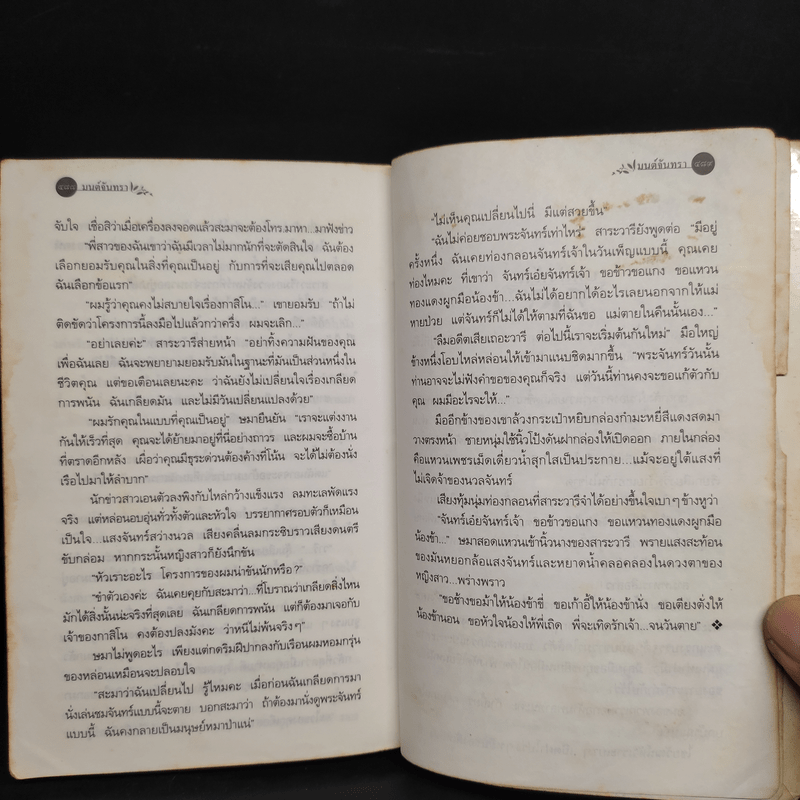 ๔๘๘ มนต์จันทรา
จับใจ เชื่อสิว่าเมื่อเครื่องลงจอดแล้วสะมาจะต้องโทร.มาหา...มาฟังข่าว
"พี่สาวของฉันเขาว่าฉันมีเวลาไม่มากนักที่จะตัดสินใจ ฉันต้อง
เลือกยอมรับคุณในสิ่งที่คุณเป็นอยู่ กับการที่จะเสียคุณไปตลอด
ฉันเลือกข้อแรก"
"ผมรู้ว่าคุณคงไม่สบายใจเรื่องกาสิโน..." เขายอมรับ "ถ้าไม่
ติดขัดว่าโครงการนี้ลงมือไปแล้วกว่าครึ่ง ผมจะเลิก..."
"อย่าเลยค่ะ" สาระวารีส่ายหน้า "อย่าทิ้งความฝันของคุณ
เพื่อฉันเลย ฉันจะพยายามยอมรับมันในฐานะที่มันเป็นส่วนหนึ่งใน
ชีวิตคุณ แต่ขอเตือนเลยนะคะ ว่าฉันยังไม่เปลี่ยนใจเรื่องเกลียด
การพนัน ฉันเกลียดมัน และไม่มีวันเปลี่ยนแปลงด้วย"
"ผมรักคุณในแบบที่คุณเป็นอยู่" ษมายืนยัน "เราจะแต่งงาน
กันให้เร็วที่สุด คุณจะได้ย้ายมาอยู่ที่นี่อย่างถาวร และผมจะซื้อบ้าน
ที่ตราดอีกหลัง เผื่อว่าคุณมีธุระด่วนต้องค้างที่โน้น จะได้ไม่ต้องนั่ง
เรือไปมาให้ลำบาก"
นักข่าวสาวเอนตัวลงพิงกับไหล่กว้างแข็งแรง ลมทะเลพัดแรง
จริง แต่หล่อนอบอุ่นทั่วทั้งตัวและหัวใจ บรรยากาศรอบตัวก็เหมือน
เป็นใจ...แสงจันทร์สว่างนวล เสียงคลื่นลมกระซิบราวเสียงดนตรี
ขับกล่อม หากกระนั้นหญิงสาวก็ยังนึกขัน
"หัวเราะอะไร โครงการของผมน่าขันนักหรือ?"
"ขำตัวเองค่ะ ฉันเคยคุยกับสะมาว่า...ที่โบราณว่าเกลียดสิ่งไหน
มักได้สิ่งนั้นน่ะจริงที่สุดเลย ฉันเกลียดการพนัน แต่ก็ต้องมาเจอกับ
เจ้าของกาสิโน คงต้องปลงมังคะ ว่าหนีไม่พ้นจริงๆ"
ษมาไม่พูดอะไร เพียงแต่กดริมฝีปากลงกับเรือนผมหอมกรุ่น
ของหล่อนเหมือนจะปลอบใจ
"สะมาว่าฉันเปลี่ยนไป รู้ไหมคะ เมื่อก่อนฉันเกลียดการมา
นั่งเล่นชมจันทร์แบบนี้จะตาย บอกสะมาว่า ถ้าต้องมานั่งดูพระจันทร์
แบบนี้ ฉันคงกลายเป็นมนุษย์หมาป่าแน่"
มนต์จันทรา ๔๘๙
"ไม่เห็นคุณเปลี่ยนไปนี่ มีแต่สวยขึ้น"
"ฉันไม่ค่อยชอบพระจันทร์เท่าไหร่" สาระวารียังพูดต่อ "มีอยู่
ครั้งหนึ่ง ฉันเคยท่องกลอนจันทร์เจ้าในวันเพ็ญแบบนี้ คุณเคย
ท่องไหมคะ ที่เขาว่า จันทร์เอ๋ยจันทร์เจ้า ขอข้าวขอแกง ขอแหวน
ทองแดงผูกมือน้องข้า...ฉันไม่ได้อยากได้อะไรเลยนอกจากให้แม่
หายป่วย แต่จันทร์ก็ไม่ได้ให้ตามที่ฉันขอ แม่ตายในคืนนั้นเอง..."
"ลืมอดีตเสียเถอะวารี ต่อไปนี้เราจะเริ่มต้นกันใหม่" มือใหญ่
ข้างหนึ่งโอบไหล่หล่อนให้เข้ามาแนบชิดมากขึ้น "พระจันทร์วันนั้น
ท่านอาจจะไม่ฟังคำขอของคุณก็จริง แต่วันนี้ท่านคงจะขอแก้ตัวกับ
คุณ ผมมีอะไรจะให้..."
มืออีกข้างของเขาล้วงกระเป๋าหยิบกล่องกำมะหยี่สีแดงสดมา
วางตรงหน้า ชายหนุ่มใช้นิ้วโป้งดันฝากล่องให้เปิดออก ภายในกล่อง
คือแหวนเพชรเม็ดเดี่ยวน้ำสุกใสเป็นประกาย...แม้จะอยู่ใต้แสงที่
ไม่เจิดจ้าของนวลจันทร์
เสียงทุ้มนุ่มท่องกลอนที่สาระวารีจำได้อย่างขึ้นใจเบาๆ ข้างหูว่า
"จันทร์เอ๋ยจันทร์เจ้า ขอข้าวขอแกง ขอแหวนทองแดงผูกมือ
น้องข้า..." ษมาสอดแหวนเข้านิ้วนางของสาระวารี พรายแสงสะท้อน
ของมันหยอกล้อแสงจันทร์และหยาดน้ำคลอคลองในดวงตาของ
หญิงสาว...พร่างพราว
"ขอช้างขอม้าให้น้องข้าขี่ ขอเก้าอี้ให้น้องข้านั่ง ขอเตียงตั่งให้
น้องข้านอน ขอหัวใจน้องให้พี่เถิด พี่จะเทิดรักเจ้า...จนวันตาย" ❖